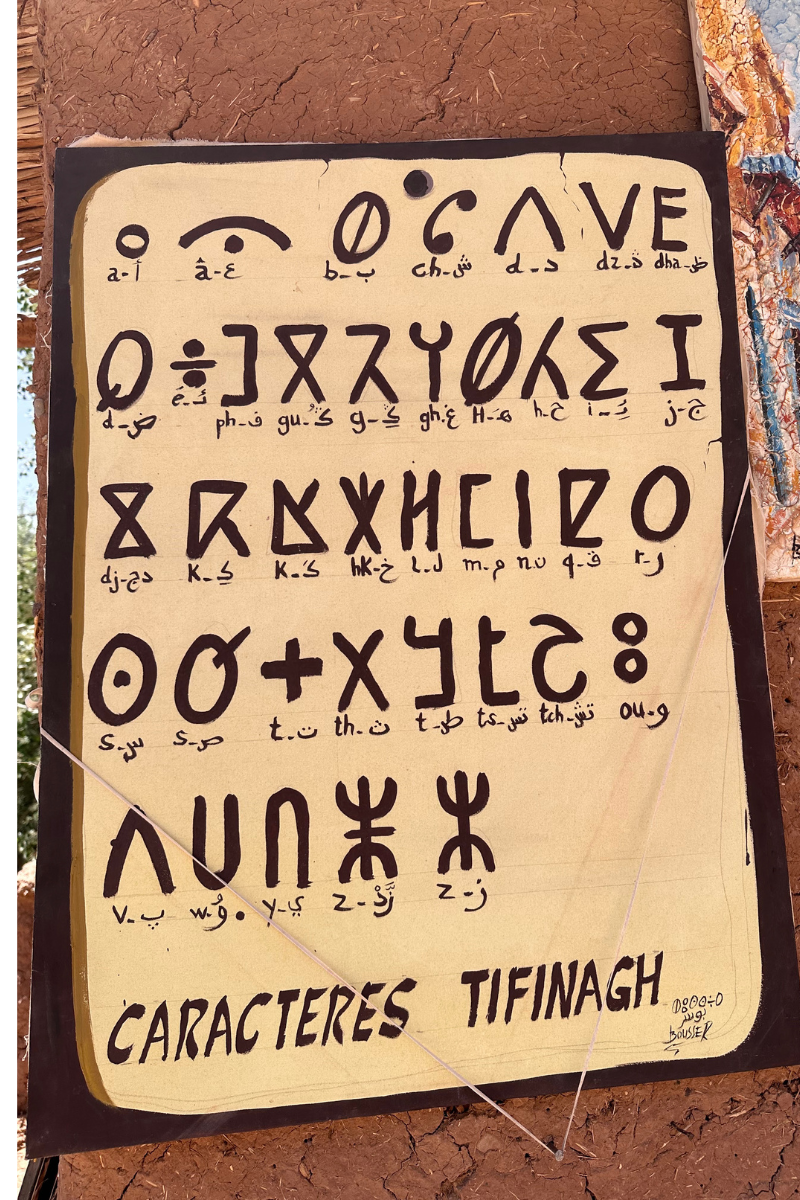 ⴰ ⵄ ⴱ ⵛ ⴷ ⴸ ⴹ
a-أ â-ع b-ب ch-ش d-د dz-ذ dha-ظ
ⵕ ⴻ ⴼ ⴳ ⵖ ⵀ ⵃ ⵉ ⵊ
d-ض é- ph-ف gu- g- gh-غ H-هـ h-ح i- j-ج
ⴵ ⴽ ⵅ ⵍ ⵎ ⵏ ⵇ ⵔ
dj-دج K- K- hK-خ L-ل m-م n-ن q-ق r-ر
ⵙ ⵚ ⵜ ⵝ ⵓ
s-س s-ص t-ت th-ث t-ط ts-تس tch-تش ou-و
ⵡ ⵥ ⵣ
V-پ w- y-ي Z- Z-ز
CARACTERES TIFINAGH
بوسر
BOUSSER